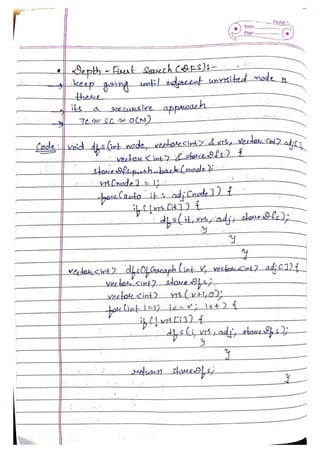 Date
Page
• Depth-First Search (DFS):-
→ keep going until adjacent unvisited node is
there
→ its a recursive approach
→ TC ≈ SC ≈ O(N)
Code: void dfs(int node, vector<int> & vis, vector<int> adj[],
vector<int> & storeDfs) {
storeDfs.push_back(node);
vis[node] = 1;
for(auto it : adj[node]) {
if(!vis[it]) {
dfs(it, vis, adj, storeDfs);
}
}
}
vector<int> dfsOfGraph(int V, vector<int> adj[]) {
vector<int> storeDfs;
vector<int> vis(V+1,0);
for(int i=1; i<=V; i++) {
if(!vis[i]) {
dfs(i, vis, adj, storeDfs);
}
}
return storeDfs;
}